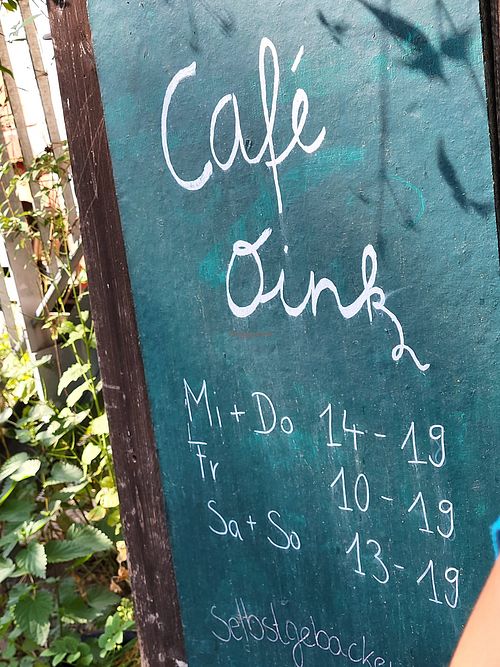 Café
Oink
Mi + Do 14 - 19
Fr 10 - 19
Sa + So 13 - 19
Selbstgebacke